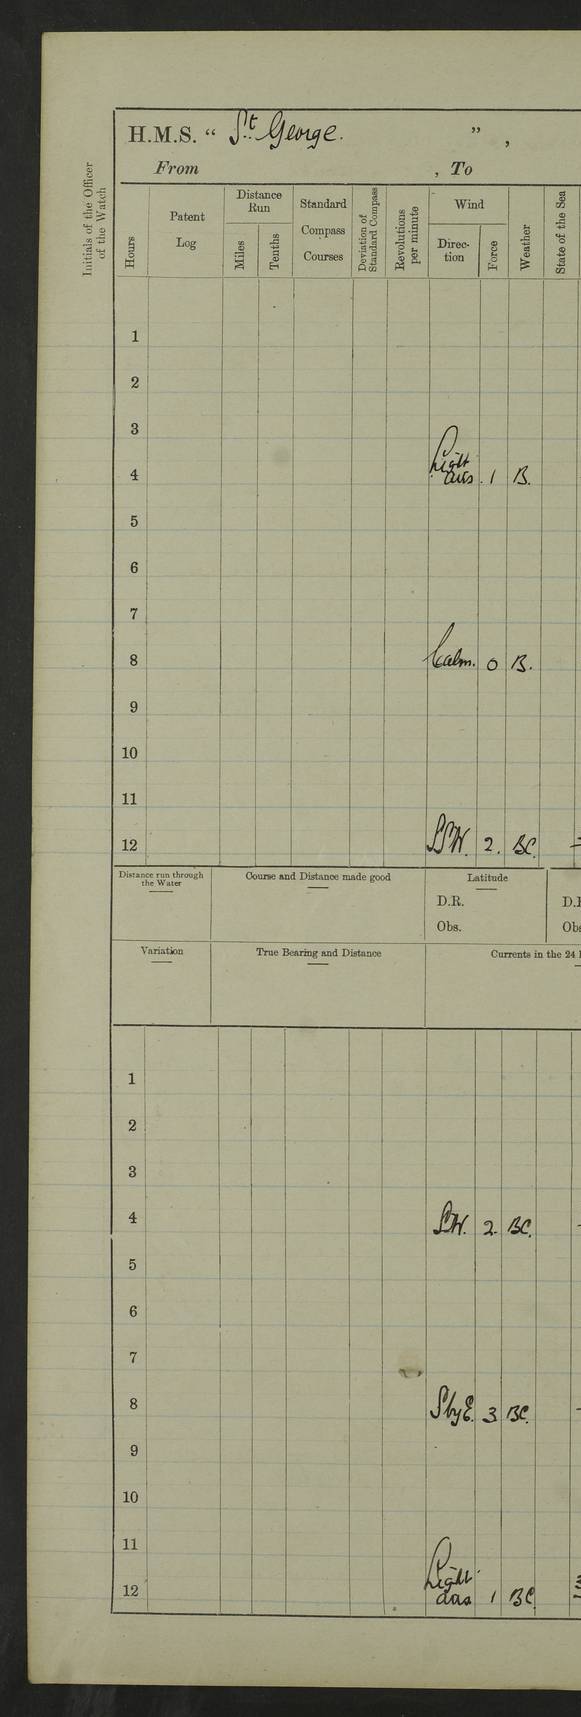 H.M.S. “ St. George. ” ,
From , To
Initials of the Officer
of the Watch
Hours
Patent
Log
Distance
Run
Miles
Tenths
Standard
Compass
Courses
Deviation of
Standard Compass
Revolutions
per minute
Wind
Direc-
tion
Force
Weather
State of the Sea
1
2
3
Light
4 airs . 1 B.
5
6
7
8 Calm. 0 B.
9
10
11
12 SSW. 2. BC.
Distance run through
the Water
Course and Distance made good
Latitude
D.R.
Obs.
Variation
True Bearing and Distance
Currents in the 24
1
2
3
4 SW. 2. BC.
5
6
7
8 SbyE. 3 BC.
9
10
11
Light
12 airs 1 BC.